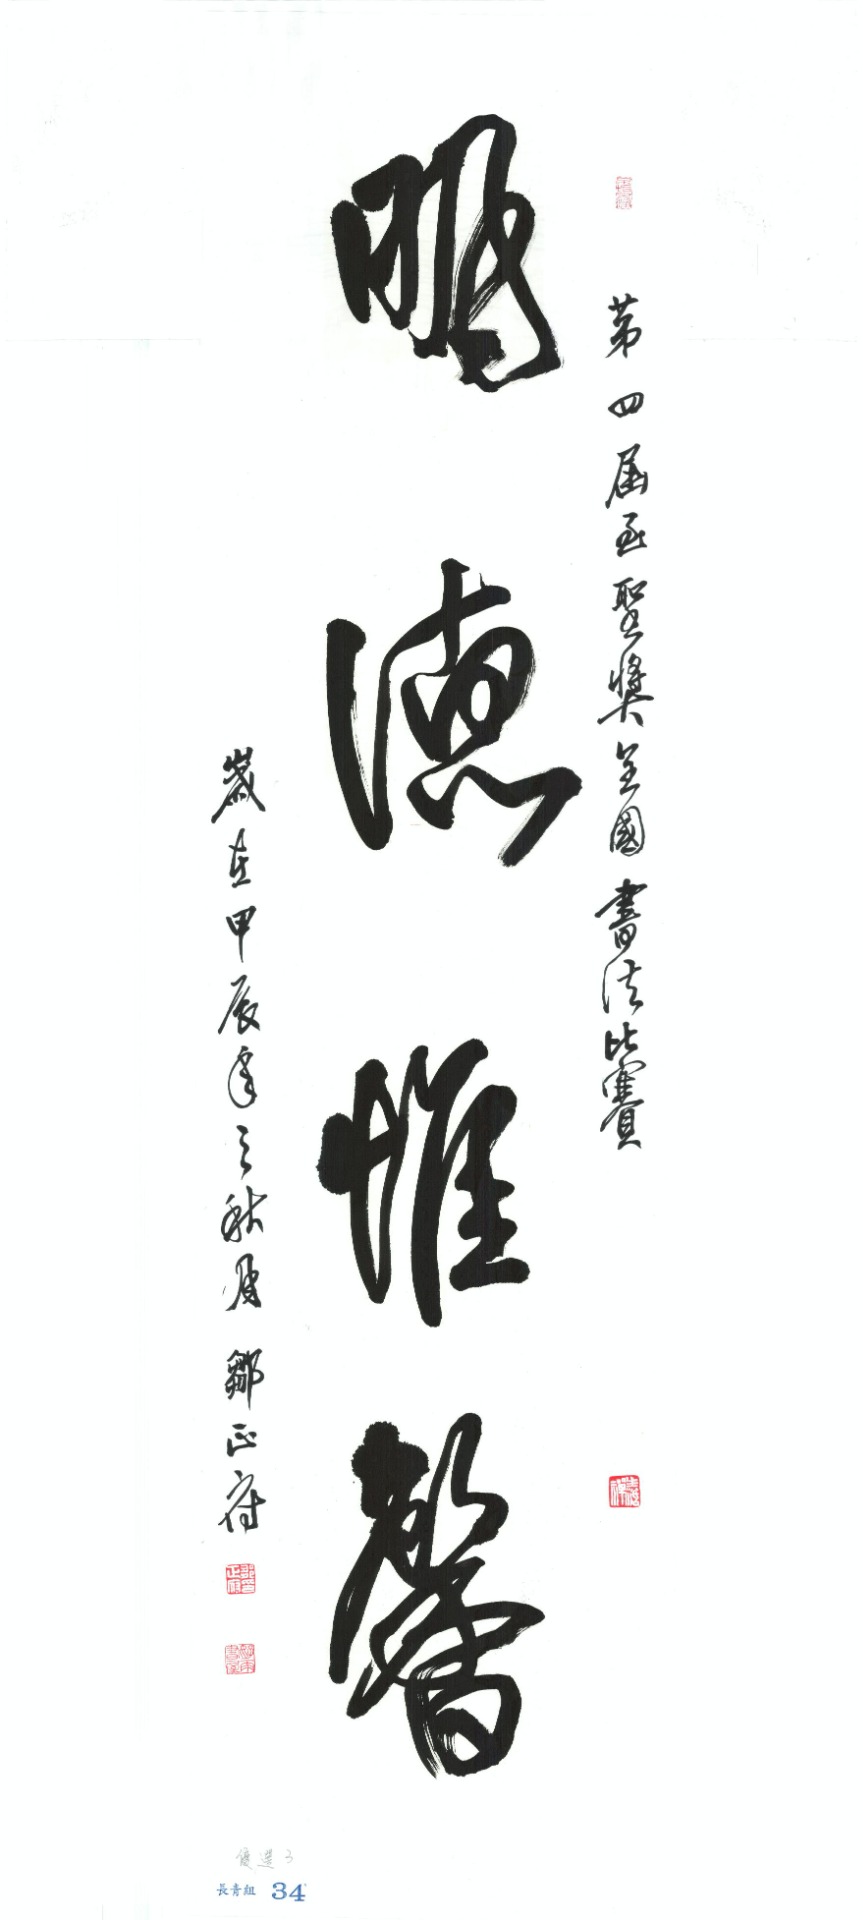 第四屆至聖獎全國書法比賽
明德惟馨
歲在甲辰年之秋月 鄒正府
優選3
長青組 34